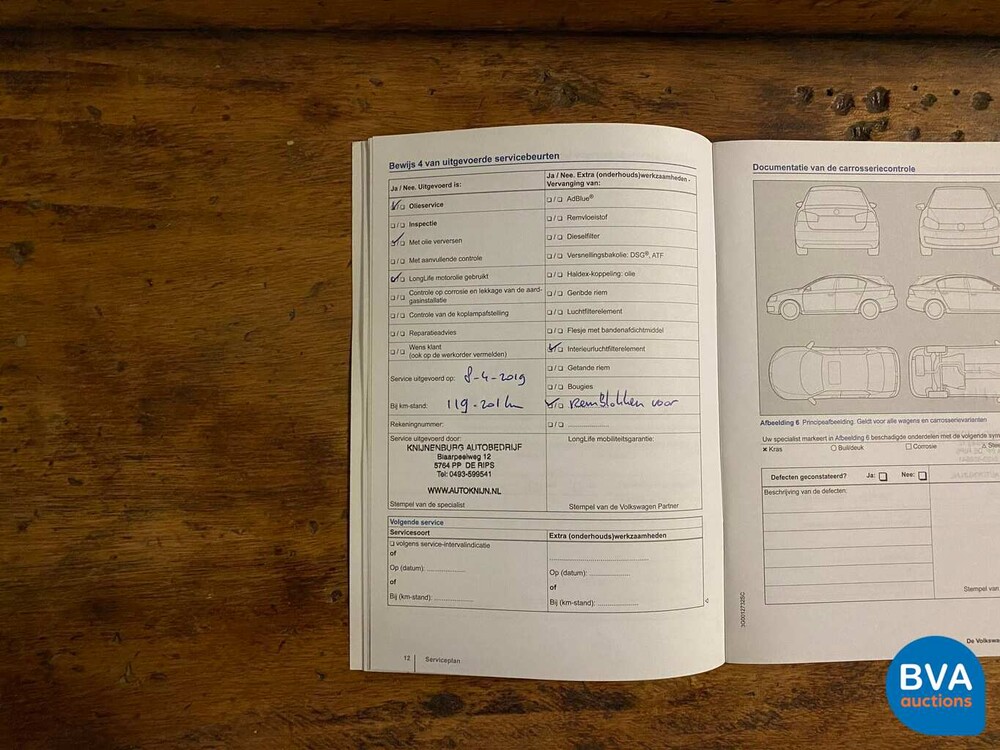 Bewijs 4 van uitgevoerde servicebeurten
Ja / Nee. Uitgevoerd is:
Olieservice
Inspectie
Met olie verversen
Met aanvullende controle
LongLife motorolie gebruikt
Controle op corrosie en lekkage van de aard-
gasinstallatie
Controle van de koplampafstelling
Reparatieadvies
Wens klant
(ook op de werkorder vermelden)
Service uitgevoerd op: 8-4-2019
Bij km-stand: 119.201 km
Rekeningnummer:
Service uitgevoerd door:
KNIJNENBURG AUTOBEDRIJF
Blaarpeelweg 12
5764 PP DE RIPS
Tel: 0493-599541
WWW.AUTOKNIJN.NL
Stempel van de specialist
Ja / Nee. Extra (onderhouds)werkzaamheden -
Vervanging van:
AdBlue®
Remvloeistof
Dieselfilter
Versnellingsbakolie: DSG®, ATF
Haldex-koppeling: olie
Geribde riem
Luchtfilterelement
Flesje met bandenafdichtmiddel
Interieurluchtfilterelement
Getande riem
Bougies
Remblokken voor
LongLife mobiliteitsgarantie:
Stempel van de Volkswagen Partner
Volgende service
Servicesoort
volgens service-intervalindicatie
of
Op (datum):
of
Bij (km-stand):
Extra (onderhouds)werkzaamheden
Op (datum):
of
Bij (km-stand):
12 Serviceplan
Documentatie van de carrosseriecontrole
Afbeelding 6 Principeafbeelding: Geldt voor alle wagens en carrosserievarianten
Uw specialist markeert in Afbeelding 6 beschadigde onderdelen met de volgende
Kras Buil/deuk Corrosie
Defecten geconstateerd? Ja: Nee:
Beschrijving van de defecten:
Stempel van
3G0012732SC
BVA
auctions